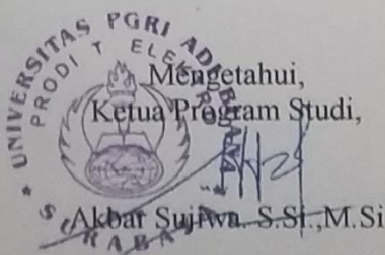 UNIVERSITAS PGRI ADI BUANA
PRODI T ELEKTRO
Mengetahui,
Ketua Program Studi,
Akbar Sujiwa. S.Si.,M.Si
SURABAYA